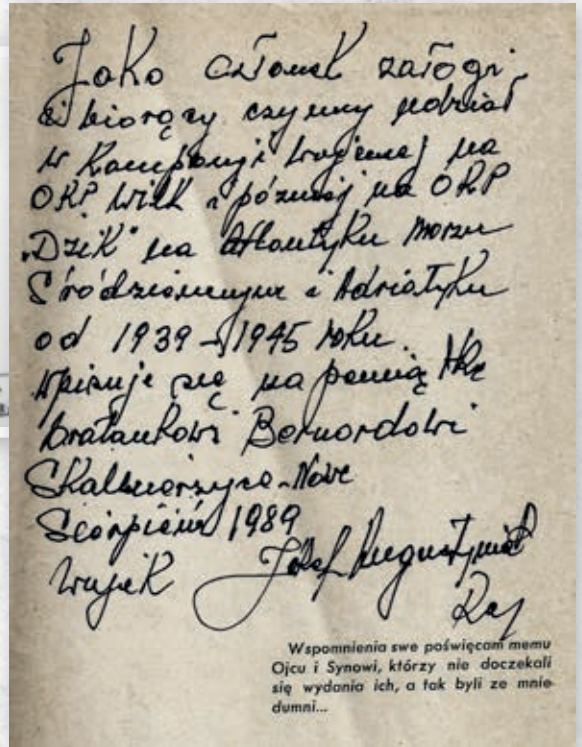 Jako członek załogi
i biorący czynny udział
w Kampanji wojennej na
ORP Wilk i później na ORP
„Dzik" na Atlantyku morzu
Śródziemnym i Adriatyku
od 1939 – 1945 roku.
Wpisuje się na pamiątkę
bratankowi Bernardowi
Skalmierzyce-Nowe
Sierpień 1989
Wujek Józef Augustyniak
Wspomnienia swe poświęcam memu
Ojcu i Synowi, którzy nie doczekali
się wydania ich, a tak byli ze mnie
dumni...